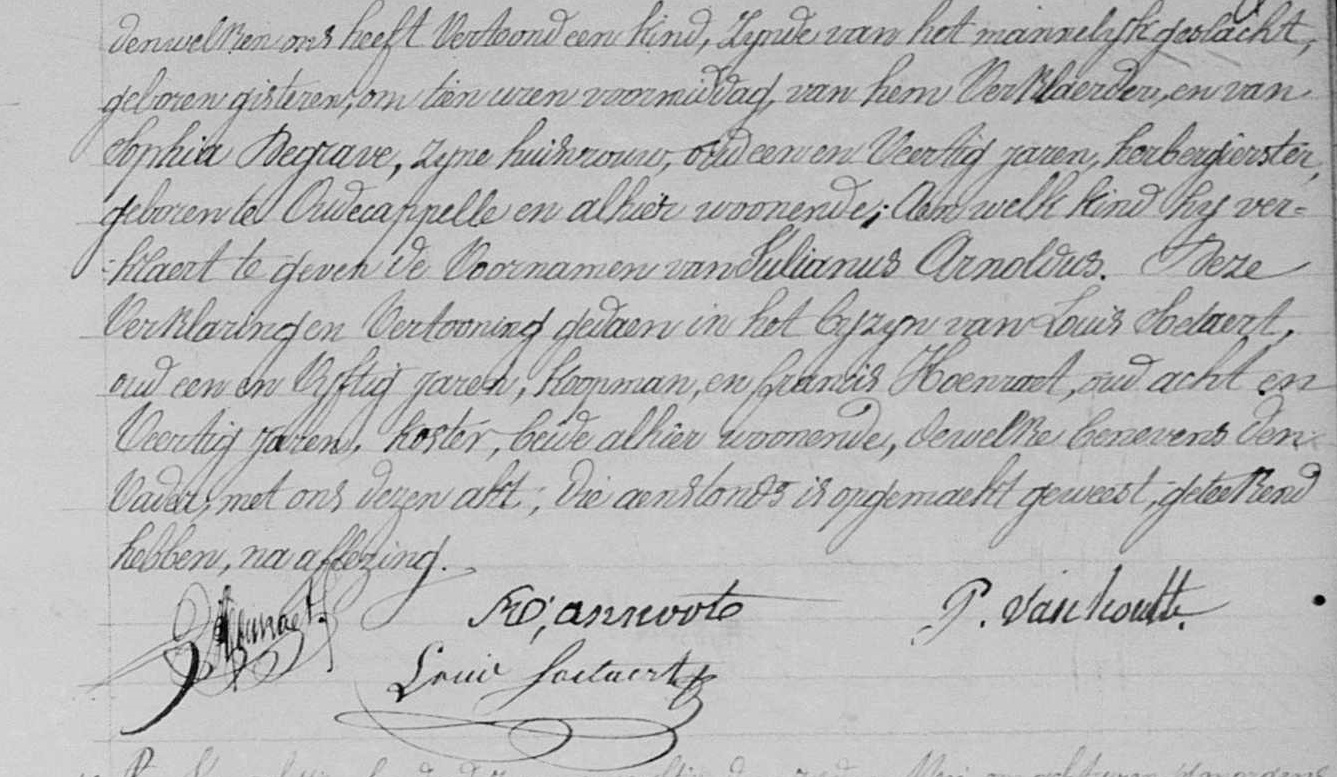 denwelken ons heeft Vertoond een kind, zynde van het mannelyk geslacht,
geboren gisteren, om tien uren voormiddag, van hem Verklaerder, en van
Sophia Degrave, zyne huisvrouw, oud een en Veertig jaren, herbergierster,
geboren te Oudecappelle en alhier woonende; Aen welk kind hy ver=
:klaert te geven de Voornamen van Julianus Arnoldus. Deze
Verklaring en Vertooning gedaen in het byzyn van Louis Soetaert,
oud een en Vyftig jaren, koopman, en francis Hoenraet, oud acht en
Veertig jaren, koster, beide alhier woonende, dewelke benevens den
Vader, met ons dezen akt, die aenstonds is opgemaekt geweest, geteekend
hebben, na aflezing.
P. Vanhoutte.
Louis Soetaert